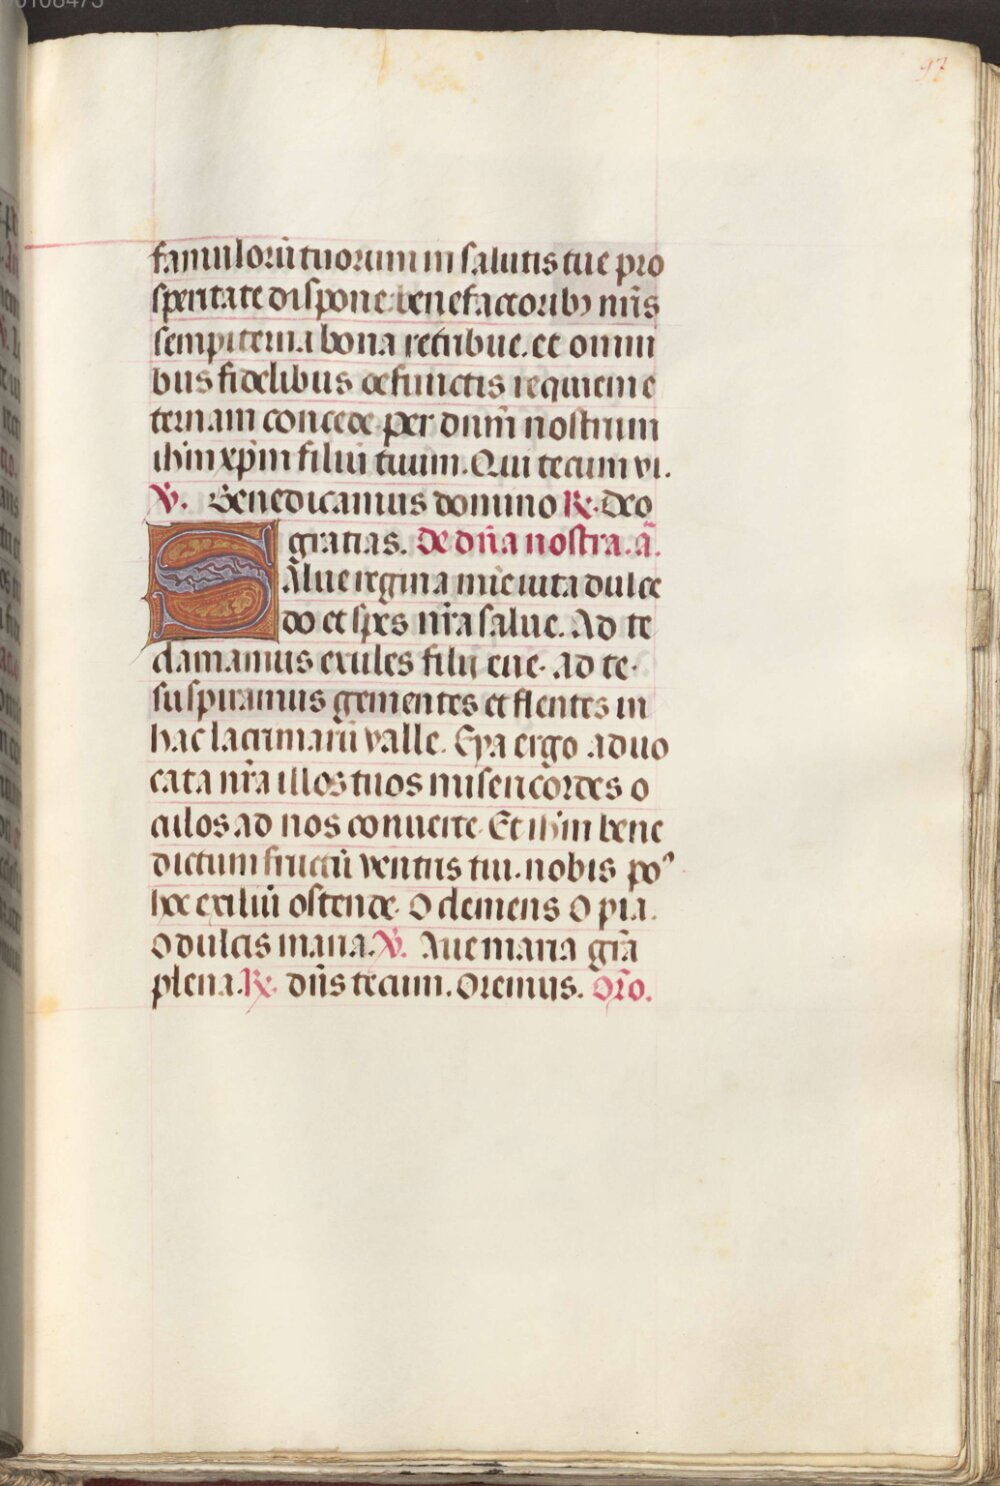 97
famulorū tuorum in salutis tue pro
speritate dispone benefactoribꝰ nr̄is
sempiterna bona retribue. et omni
bus fidelibus defunctis requiem e
ternam concede. per dnm̄ nostrum
ihm̄ xp̄m filiū tuum. Qui tecum vi.
℣. Benedicamus domino ℟. Deo
gratias. De dn̄a nostra. ā.
Salue regina mīe uita dulce
do et spes nr̄a salue. Ad te
clamamus exules filii eue. ad te.
suspiramus gementes et flentes in
hac lacrimarū valle. Eya ergo aduo
cata nr̄a illos tuos misericordes o
culos ad nos conuerte. Et ihm̄ bene
dictum fructū ventris tui. nobis poꝰ
hoc exiliū ostende. O clemens O pia.
O dulcis maria. ℣. Aue maria grā
plena. ℟. dn̄s tecum. Oremus. Or̄o.